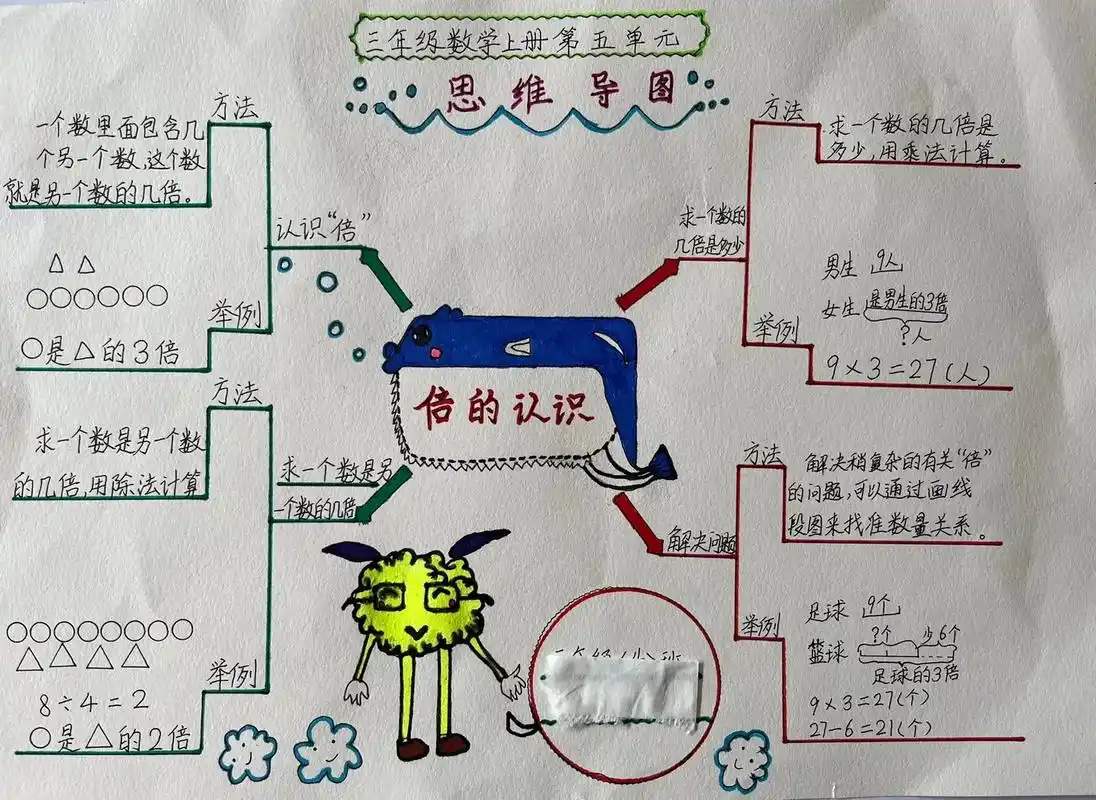 三年级数学上册第五单元
思维导图
倍的认识
认识“倍”
方法
一个数里面包含几
个另一个数,这个数
就是另一个数的几倍。
举例
○是△的3倍
求一个数是另
一个数的几倍
方法
求一个数是另一个数
的几倍,用除法计算
举例
8÷4=2
○是△的2倍
求一个数的
几倍是多少
方法
求一个数的几倍是
多少,用乘法计算。
举例
男生 9人
女生 是男生的3倍
?人
9×3=27(人)
解决问题
方法
解决稍复杂的有关“倍”
的问题,可以通过画线
段图来找准数量关系。
举例
足球 9个
篮球 ?个 少6个
足球的3倍
9×3=27(个)
27-6=21(个)